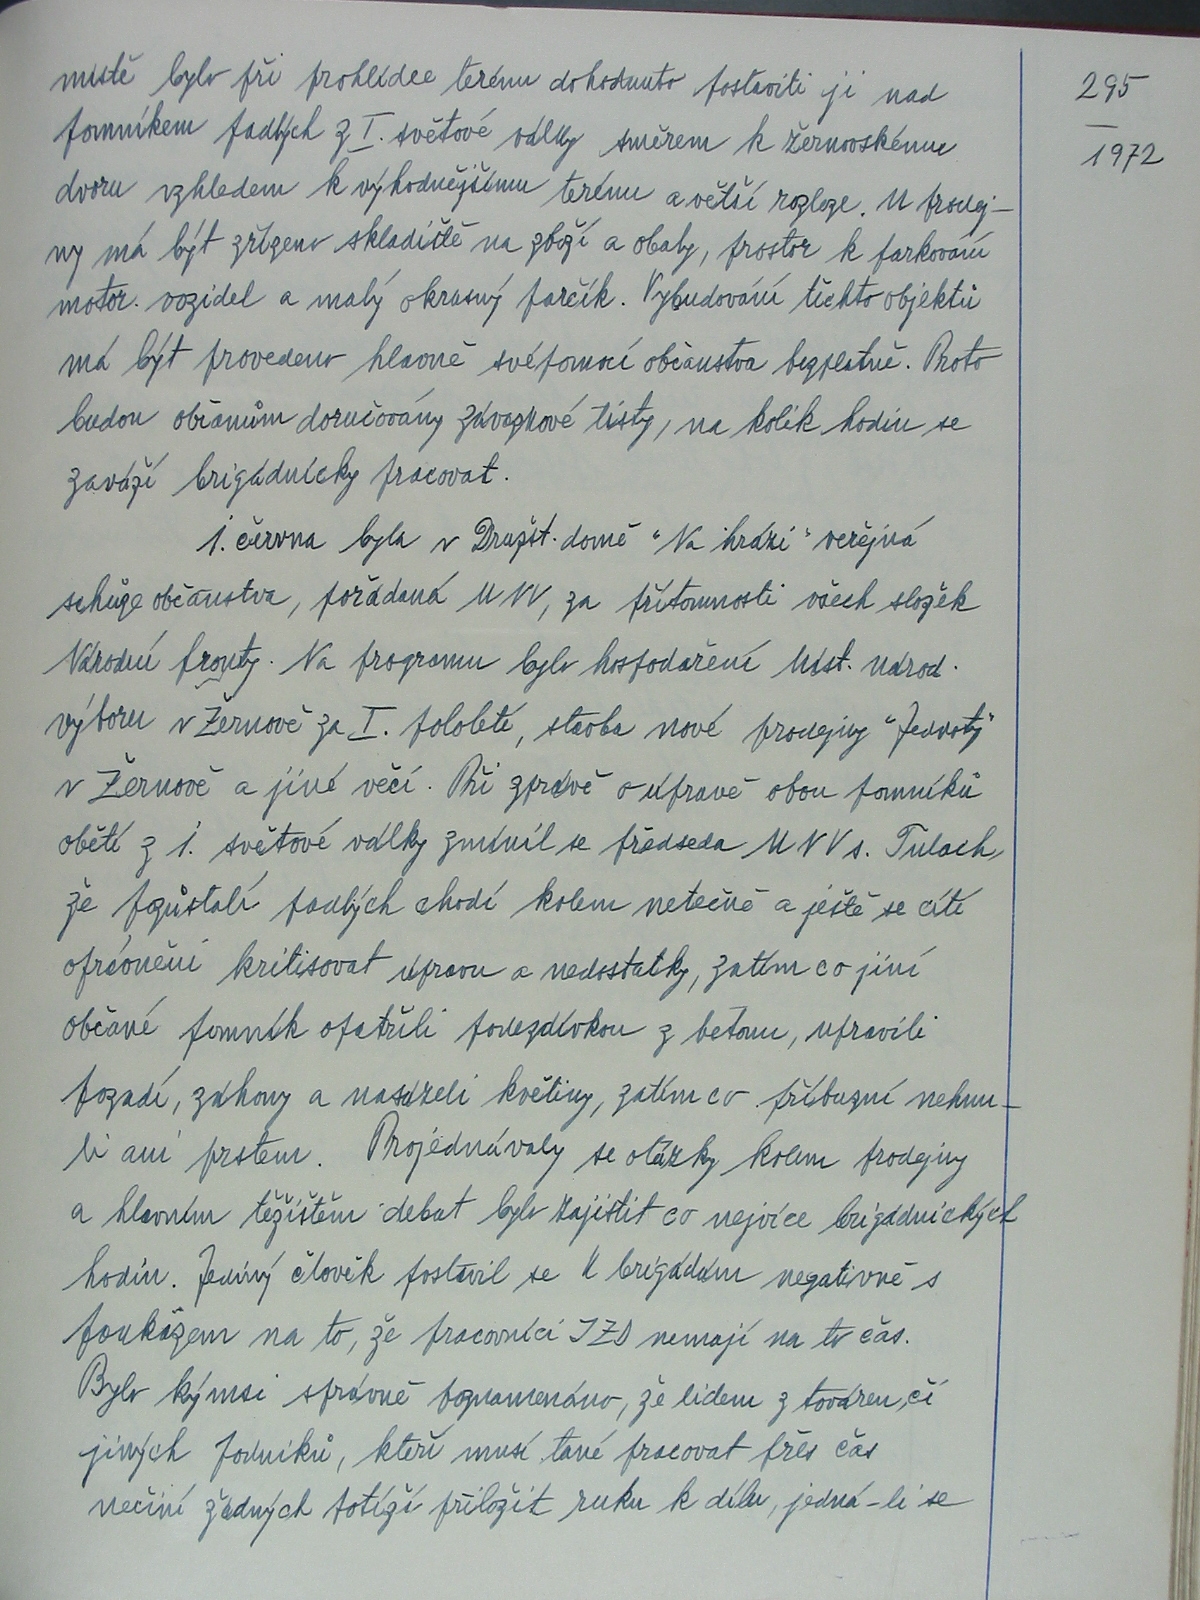 295
1972
místě bylo při prohlídce terénu dohodnuto postaviti ji nad
pomníkem padlých z I. světové války směrem k žernovskému
dvoru vzhledem k výhodnějšímu terénu a větší rozloze. U prodej-
ny má být zřízeno skladiště na zboží a obaly, prostor k parkování
motor. vozidel a malý okrasný parčík. Vybudování těchto objektů
má být provedeno hlavně svépomocí občanstva bezplatně. Proto
budou občanům doručovány závazkové listy, na kolik hodin se
zaváží brigádnicky pracovat.
1. června byla v Družst. domě "Na hrázi" veřejná
schůze občanstva, pořádaná MNV, za přítomnosti všech složek
Národní fronty. Na programu bylo hospodaření Míst. národ.
výboru v Žernově za I. pololetí, stavba nové prodejny "Jednoty"
v Žernově a jiné věci. Při zprávě o úpravě obou pomníků
obětí z 1. světové války zmínil se předseda MNV s. Tulach,
že pozůstalí padlých chodí kolem netečně a ještě se cítí
oprávnění kritisovat úpravu a nedostatky, zatím co jiní
občané pomník opatřili podezdívkou z betonu, upravili
pozadí, záhony a nasázeli květiny, zatím co příbuzní nehnu-
li ani prstem. Projednávaly se otázky kolem prodejny
a hlavním těžištěm debat bylo zajistit co nejvíce brigádnických
hodin. Jediný člověk postavil se k brigádám negativně s
poukázem na to, že pracovníci JZD nemají na to čas.
Bylo kýmsi správně poznamenáno, že lidem z továren, či
jiných podniků, kteří musí také pracovat přes čas
nečiní žádných potíží přiložit ruku k dílu, jedná-li se